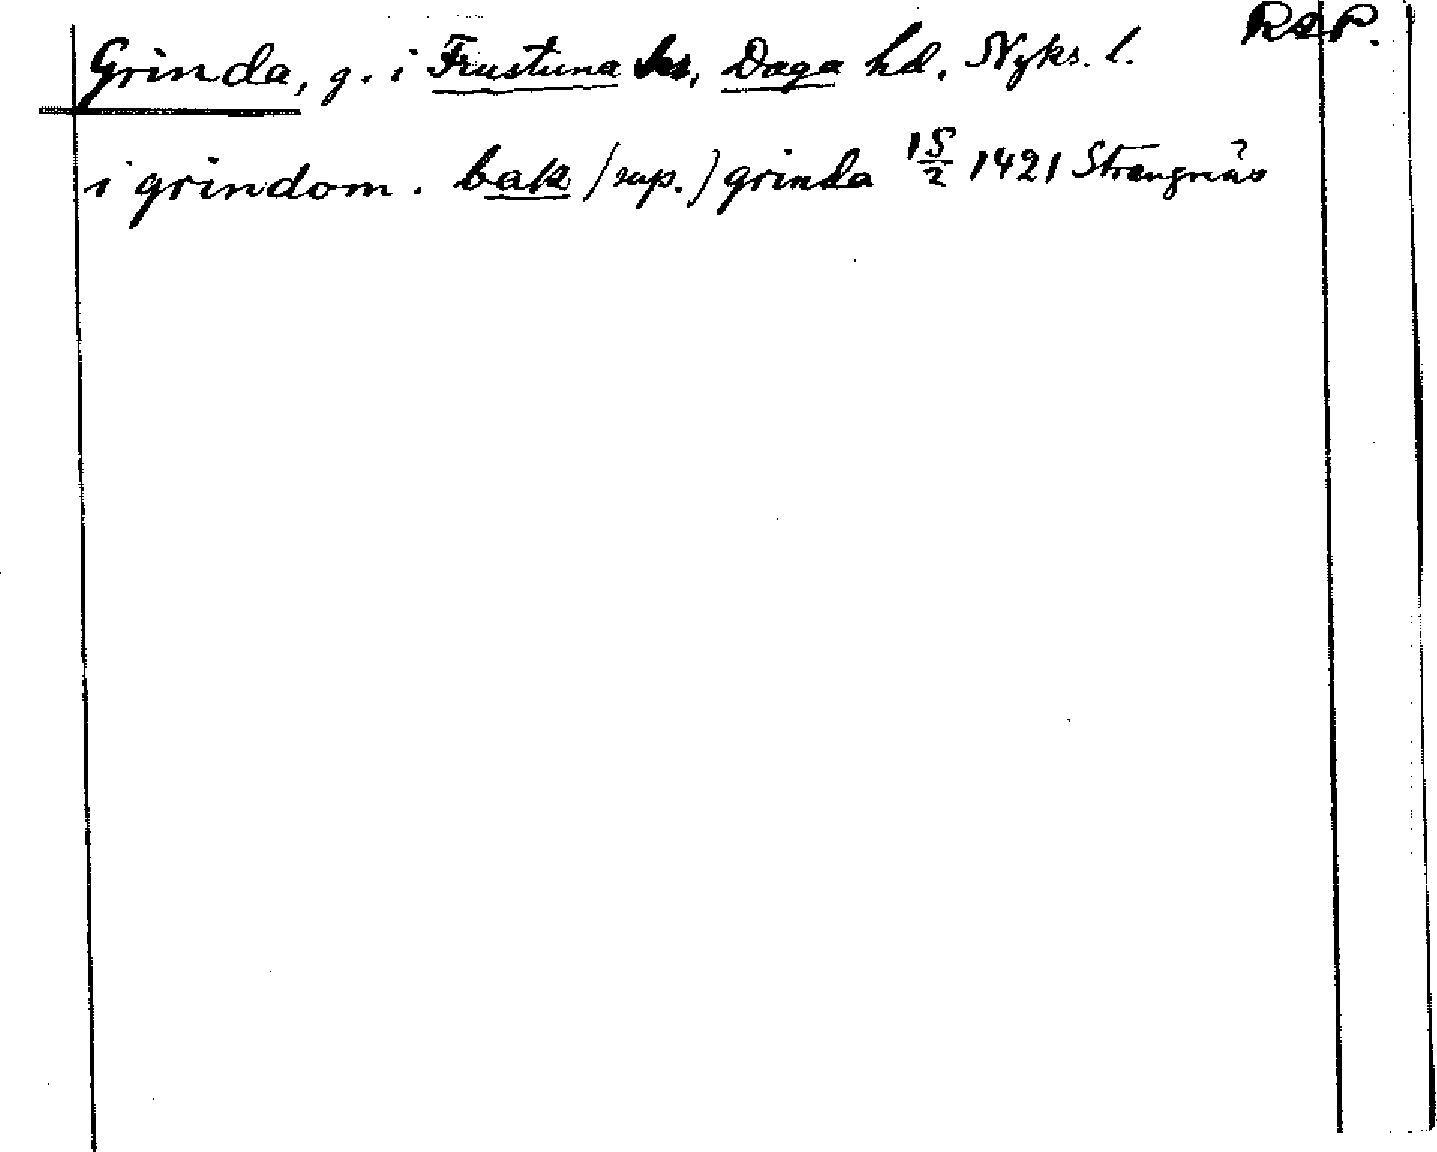 RAP.
Grinda, g. i Frustuna sn, Daga hd. Nyks. l.
i grindom. bak (rup.) grinda 15/2 1421 Strengnäs